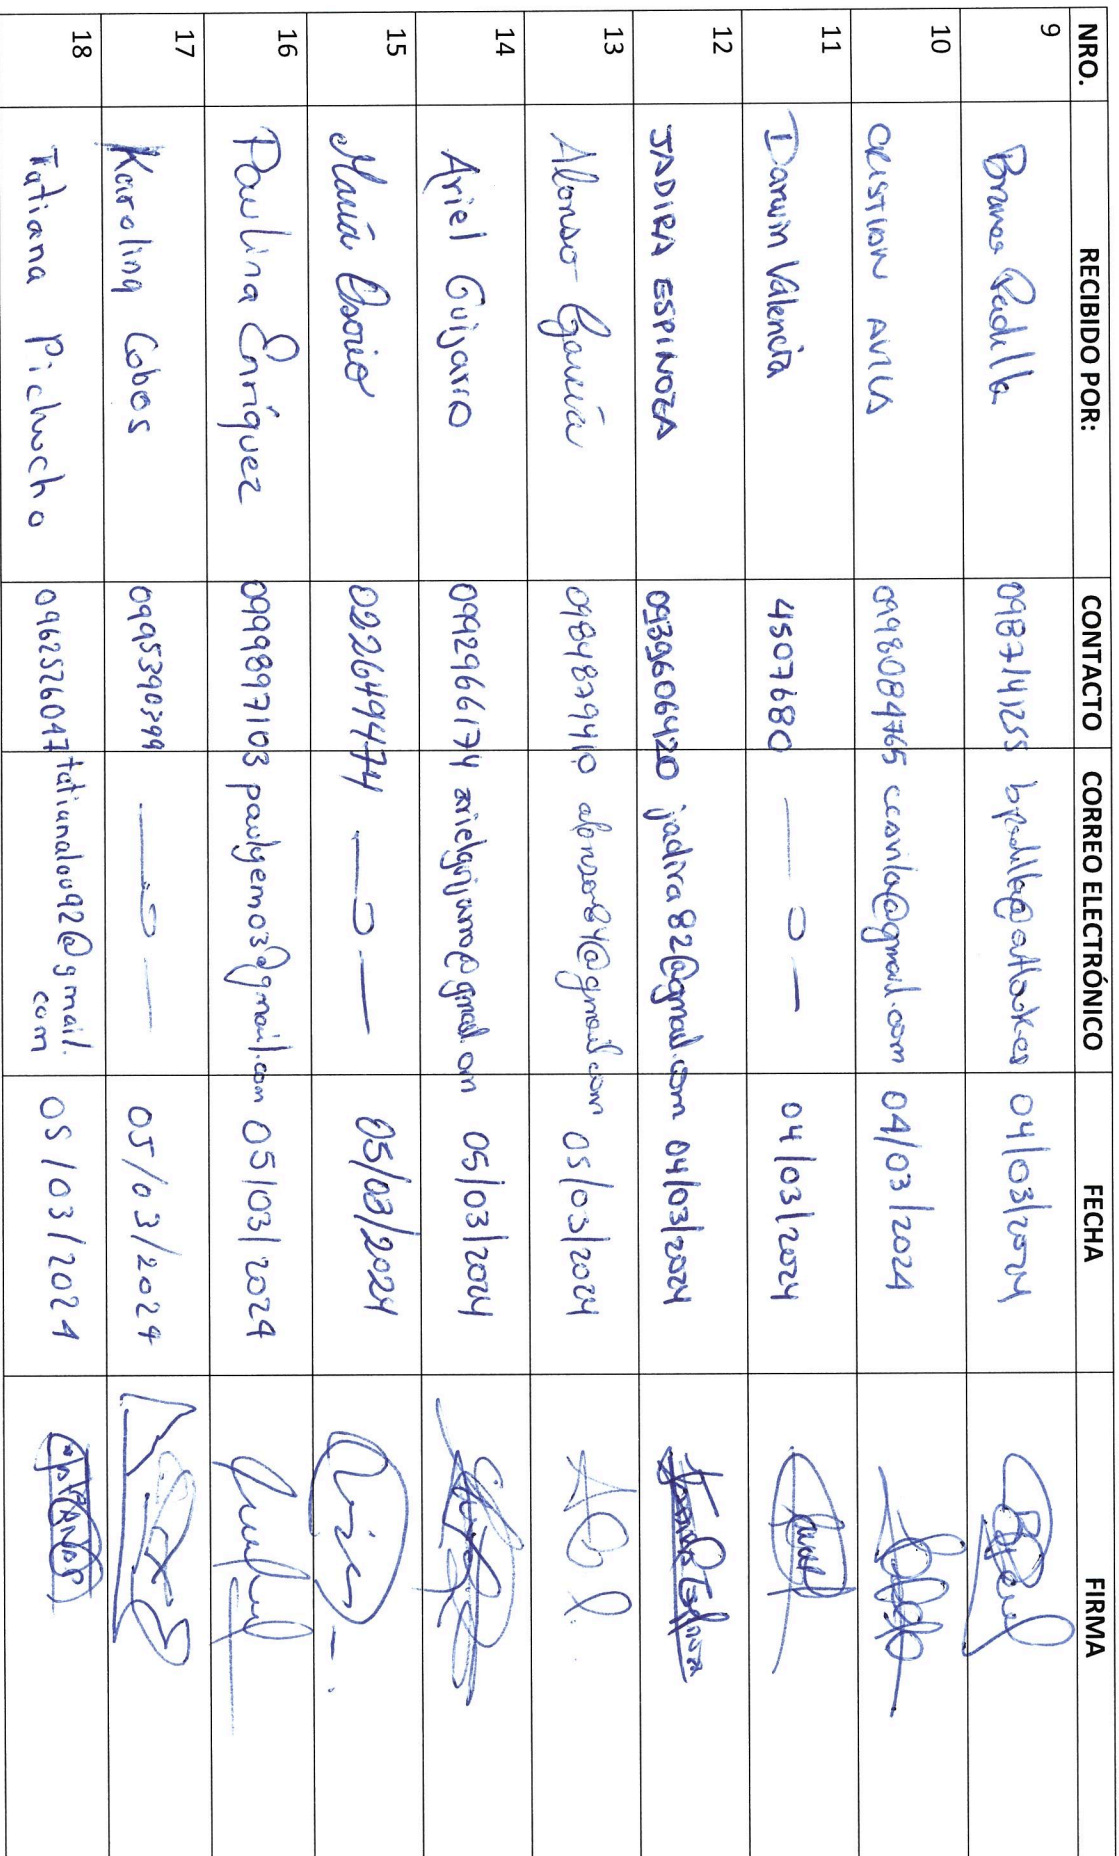 NRO. RECIBIDO POR: CONTACTO CORREO ELECTRÓNICO FECHA FIRMA
9 Padilla 0987141255 04/03/2024
10 CRISTIAN AVILA 0998084765 ccavila@gmail.com 04/03/2024
11 Darwin Valencia 4507680 — 0 — 04/03/2024
12 JADIRA ESPINOZA 0939606420 jadira82@gmail.com 04/03/2024 Jadira Espinoza
13 Alonso García 0984879410 alonso84@gmail.com 05/03/2024
14 Ariel Guijarro 0992966174 arielguijarro@gmail.com 05/03/2024
15 María Osorio 022649474 — 0 — 05/03/2024
16 Paulina Enríquez 0999897103 paulyem03@gmail.com 05/03/2024
17 Karolina Cobos 0995390399 — 0 — 05/03/2024
18 Tatiana Pichucho 0962526047 tatianalou92@gmail.
com 05/03/2024